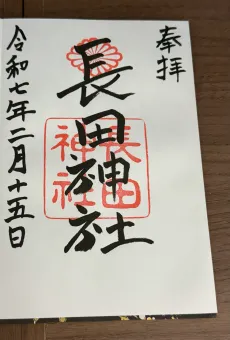 奉拝
長田神社
長田
神社
令和七年二月十五日